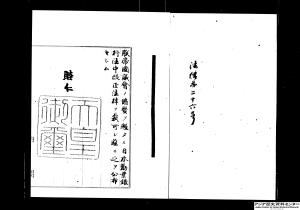 法律第二十六号
朕帝国議会ノ協賛ヲ経タル日本勧業銀
行法中改正法律ヲ裁可シ茲ニ之ヲ公布
セシム
睦仁
天皇
御璽
アジア歴史資料センター